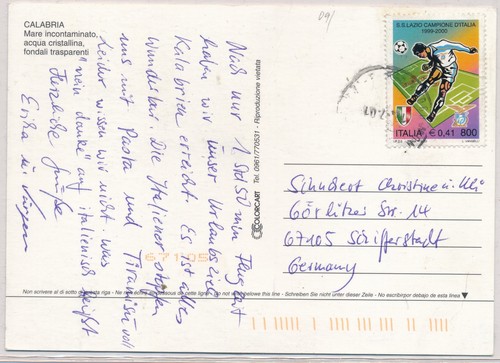 CALABRIA
Mare incontaminato,
acqua cristallina,
fondali trasparenti
Nach nur 1 Std 50 min Flugzeit
haben wir unser Urlaubsziel
Kalabrien erreicht. Es ist alles
wunderbar. Die Italiener stopfen
uns mit Pasta und Tiramisu voll
leider wissen wir nicht was
"nein danke" auf italienisch heißt
Herzliche Grüße
Erika u. Jürgen
COLORCART Tel. 0961/770531 - Riproduzione vietata
S.S.LAZIO CAMPIONE D'ITALIA
1999-2000
ITALIA € 0,41 800
Schubert Christine u. Uli
Görlitzer Str. 14
67105 Schifferstadt
Germany
67105
Non scrivere al di sotto di questa riga - Ne rien écrire au-dessous de cette ligne - Do not write below this line - Schreiben Sie nicht unter dieser Zeile - No escribir por debajo de esta linea